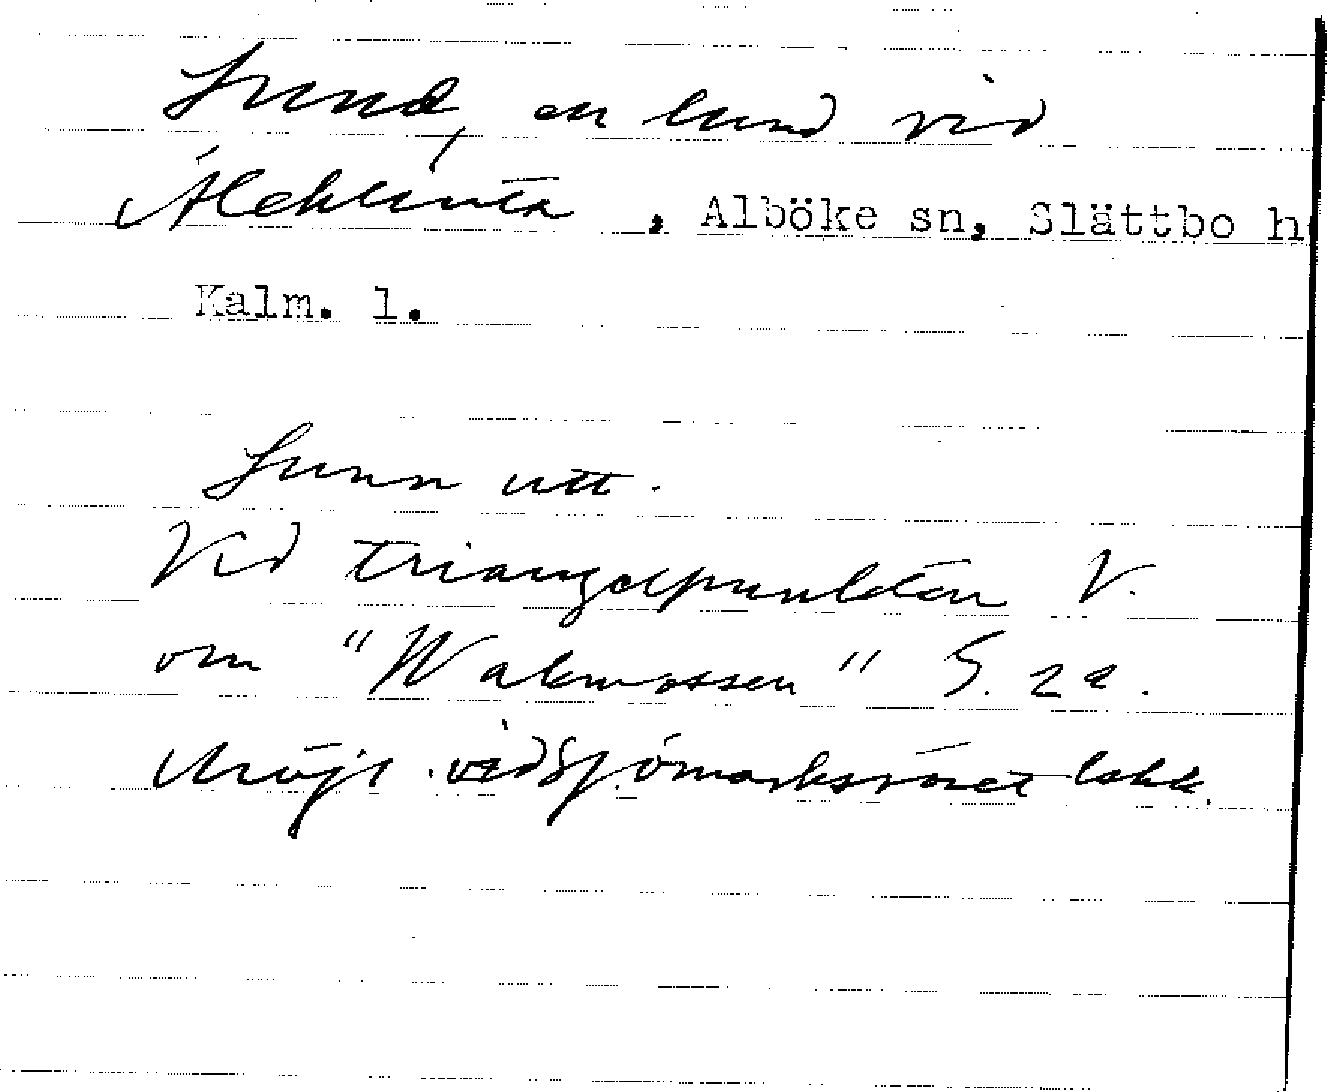 Lund, en lund vid
Äleklinta, Alböke sn, Slättbo h
Kalm. l.
Lunn utt.
Vid triangelpunkten V.
om "Walmossen" S. 22.
Möjl. vid Sjömarksröset lokk.